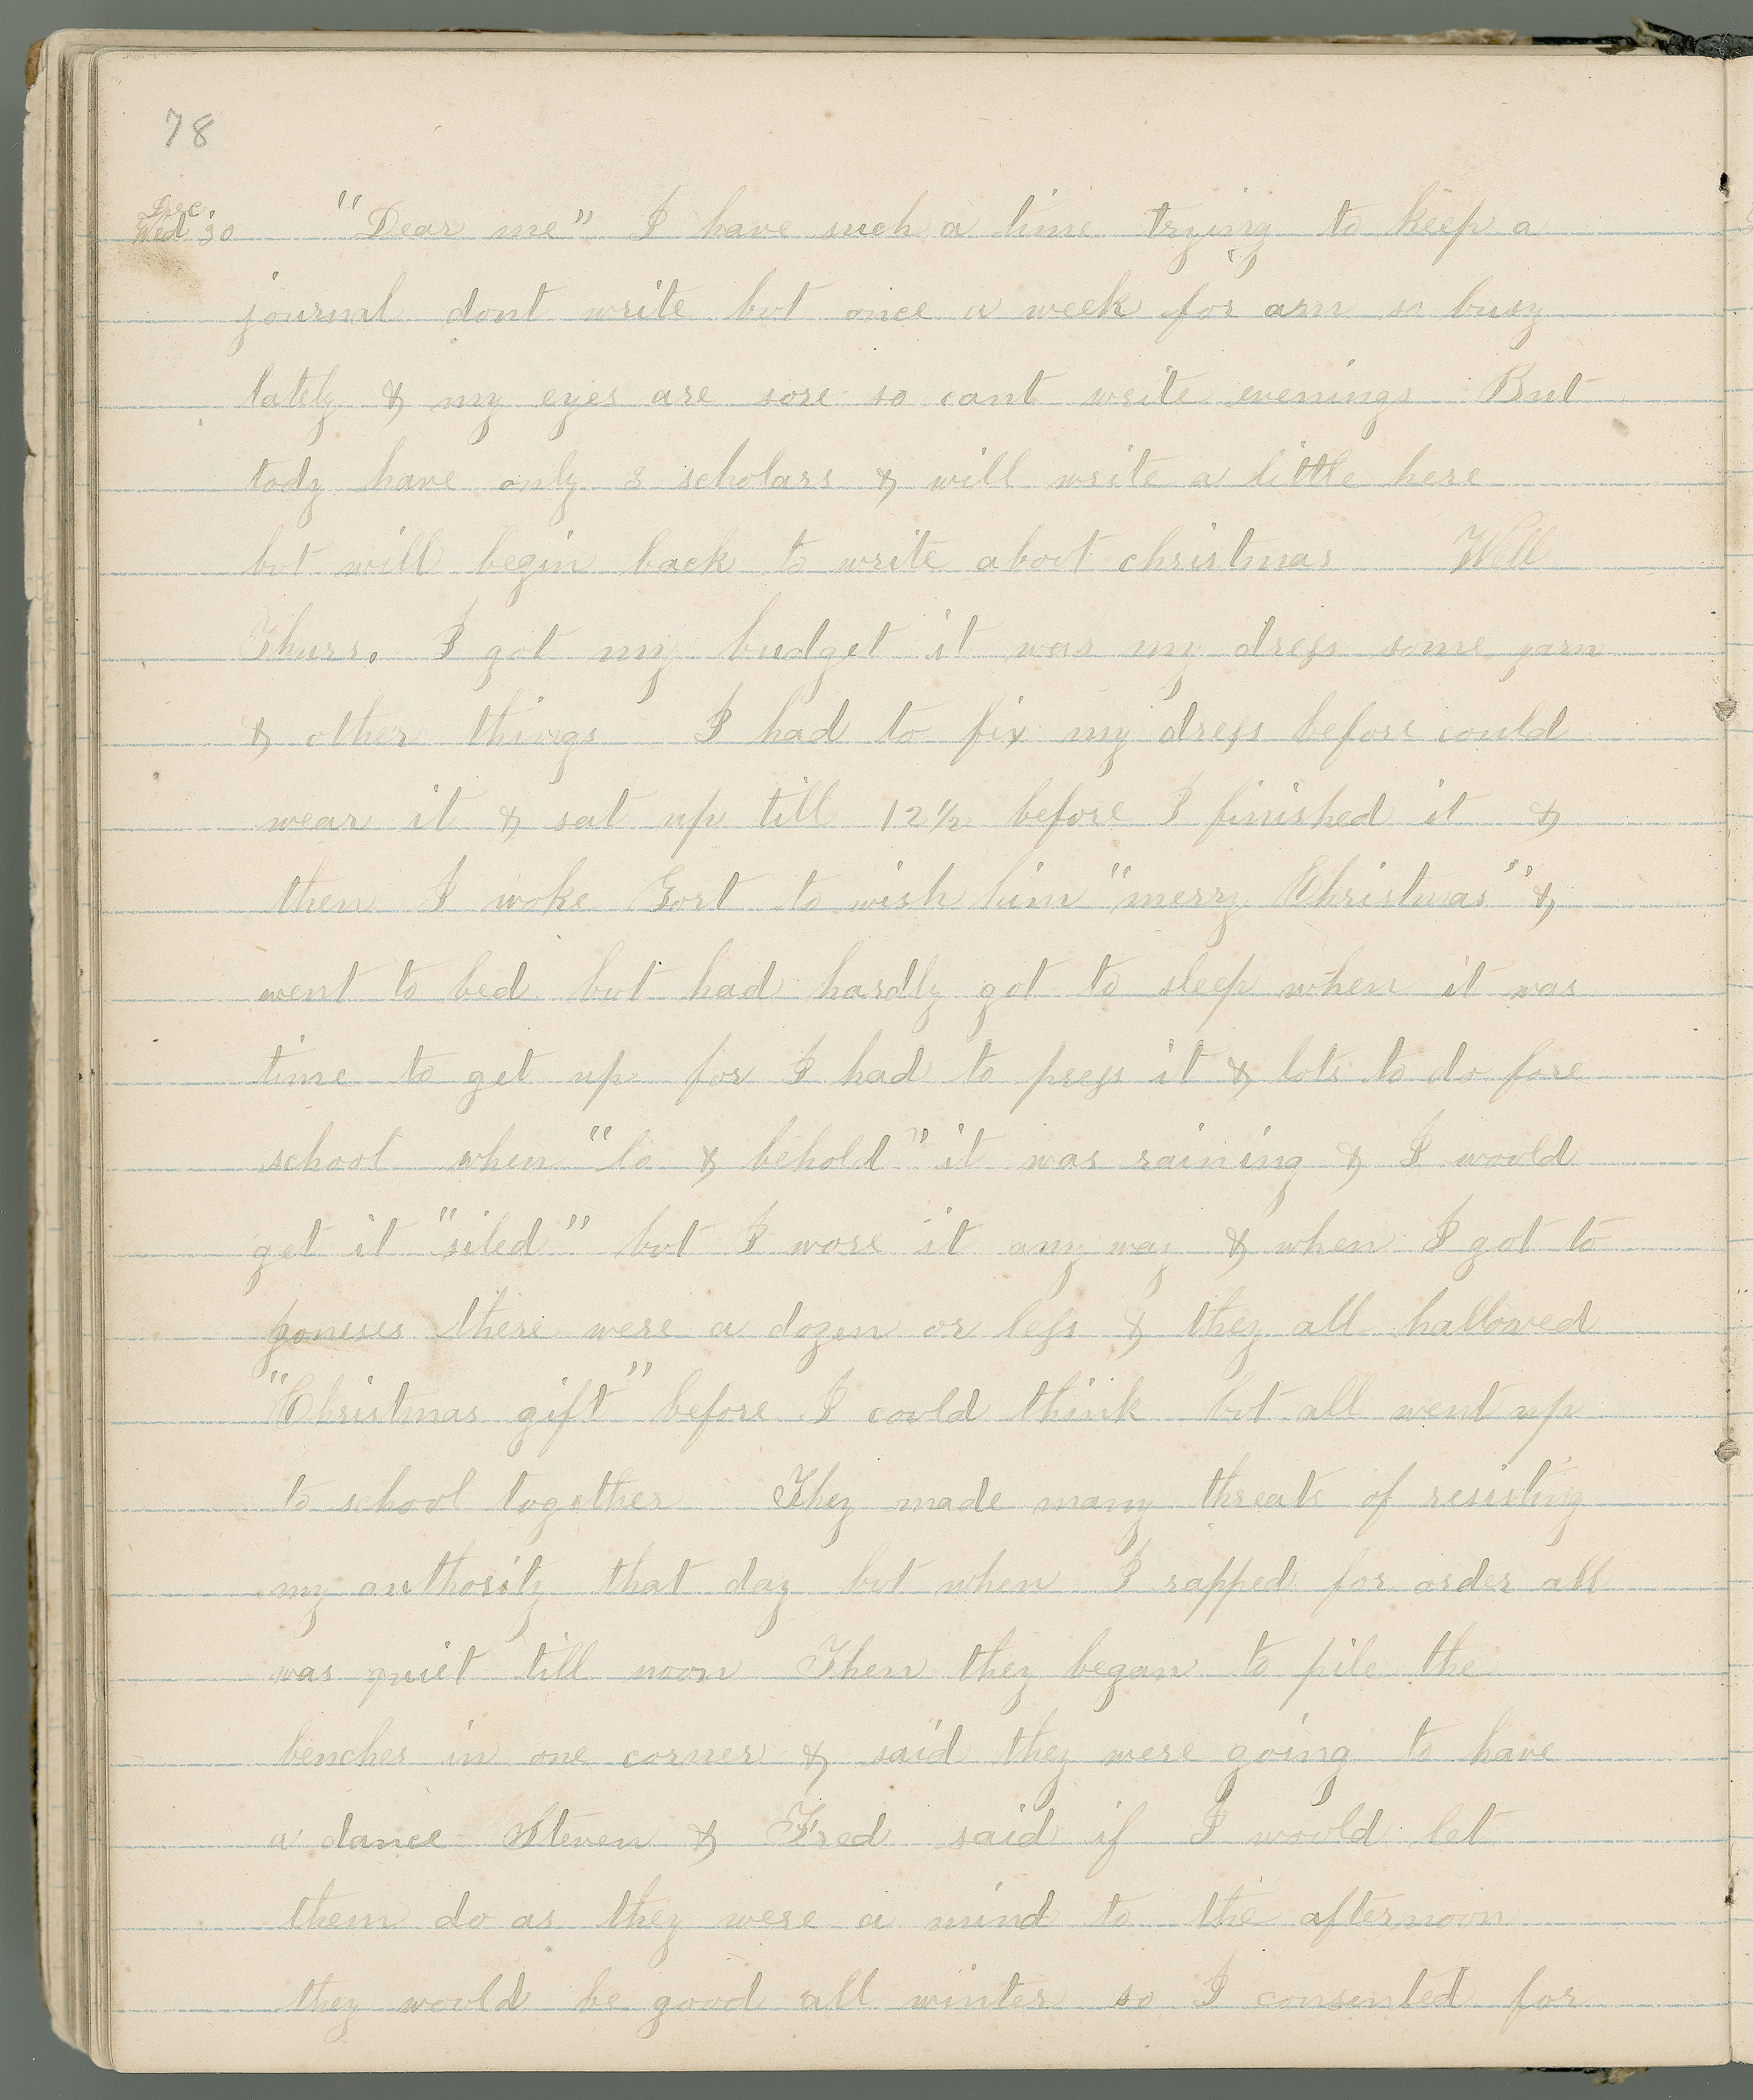 78
Dec
Wed 30 "Dear me" I have such a time trying to keep a
journal dont write but once a week for am so busy
lately & my eyes are sore so cant write evenings But
tody have only 3 scholars & will write a little here
but will begin back to write about christmas Well
Thurs. I got my budget it was my dress some yarn
& other things I had to fix my dress before could
wear it & sat up till 12 1/2 before I finished it &
then I woke Gort to wish him "merry Christmas" &
went to bed but had hardly got to sleep when it was
time to get up for I had to press it & lots to do fore
school when "lo & behold" it was raining & I would
get it "siled" but I wore it any way & when I got to
there were a dozen or less & they all hallowed
"Christmas gift" before I could think but all went up
to school together They made many threats of resisting
my authority that day but when I rapped for order all
was quiet till noon Then they began to pile the
benches in one corner & said they were going to have
a dance Steven & Fred said if I would let
them do as they were a mind to the afternoon
they would be good all winter so I consented for